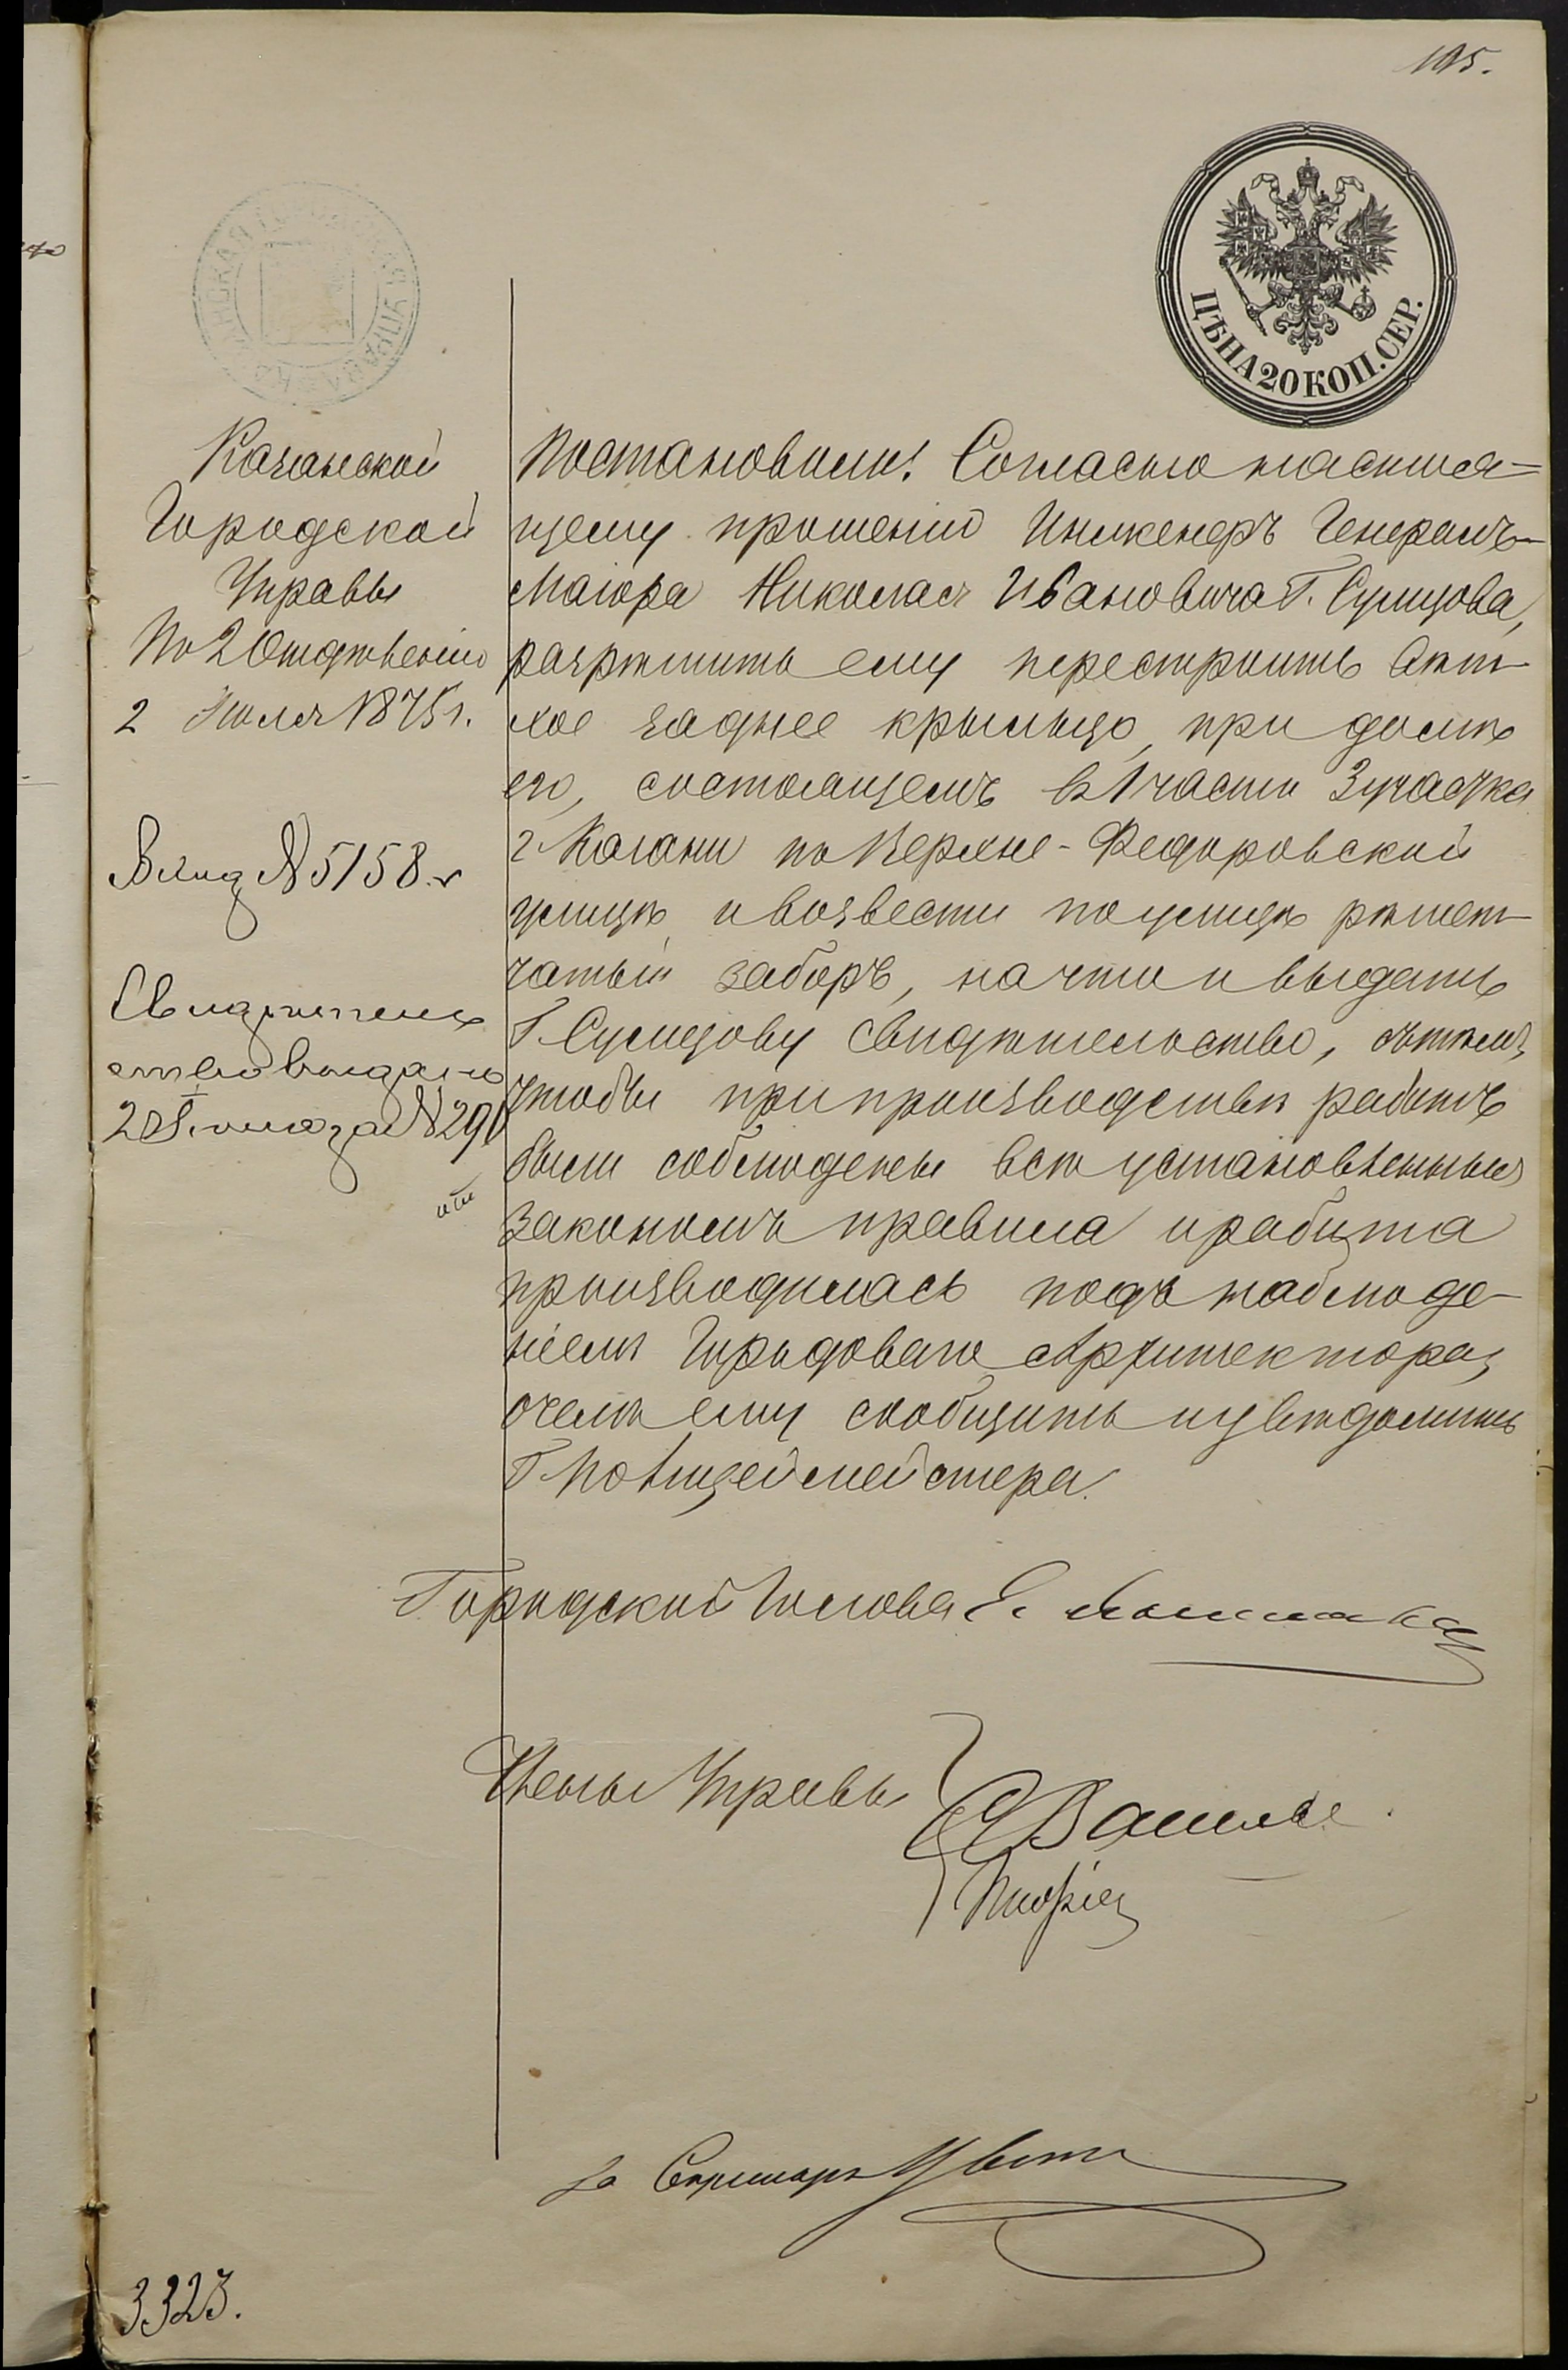 195.
ЦѢНА 20 КОП. СЕР.
Казанской
Городской
Управы
По 2 Отдѣленію
2 Июля 1875 г.
Вход № 5158.
Свидѣтель
ство выдано
2 Іюля за № 290
Постановили: Согласно настоя=
щему прошенію Инженеръ Генералъ-
Маіора Николая Ивановича Г. Сумцова,
разрѣшить ему перестроить
заднее крыльцо, при домѣ
его, состоящемъ въ 1 части 3 участка
г. Казани по Верхне-Федоровской
улицѣ, и возвести по улицѣ рѣшет-
чатый заборъ, на что и выдать
Г. Сумцову Свидѣтельство, съ тѣмъ,
чтобы при производствѣ работъ
были соблюдены всѣ установленныя
закономъ правила и работа
производилась подъ наблюде-
ніемъ Городоваго Архитектора,
о чемъ ему сообщить и увѣдомить
Г. Полицеймейстера.
Городской Голова
Члены Управы
За Секретаря
3323.